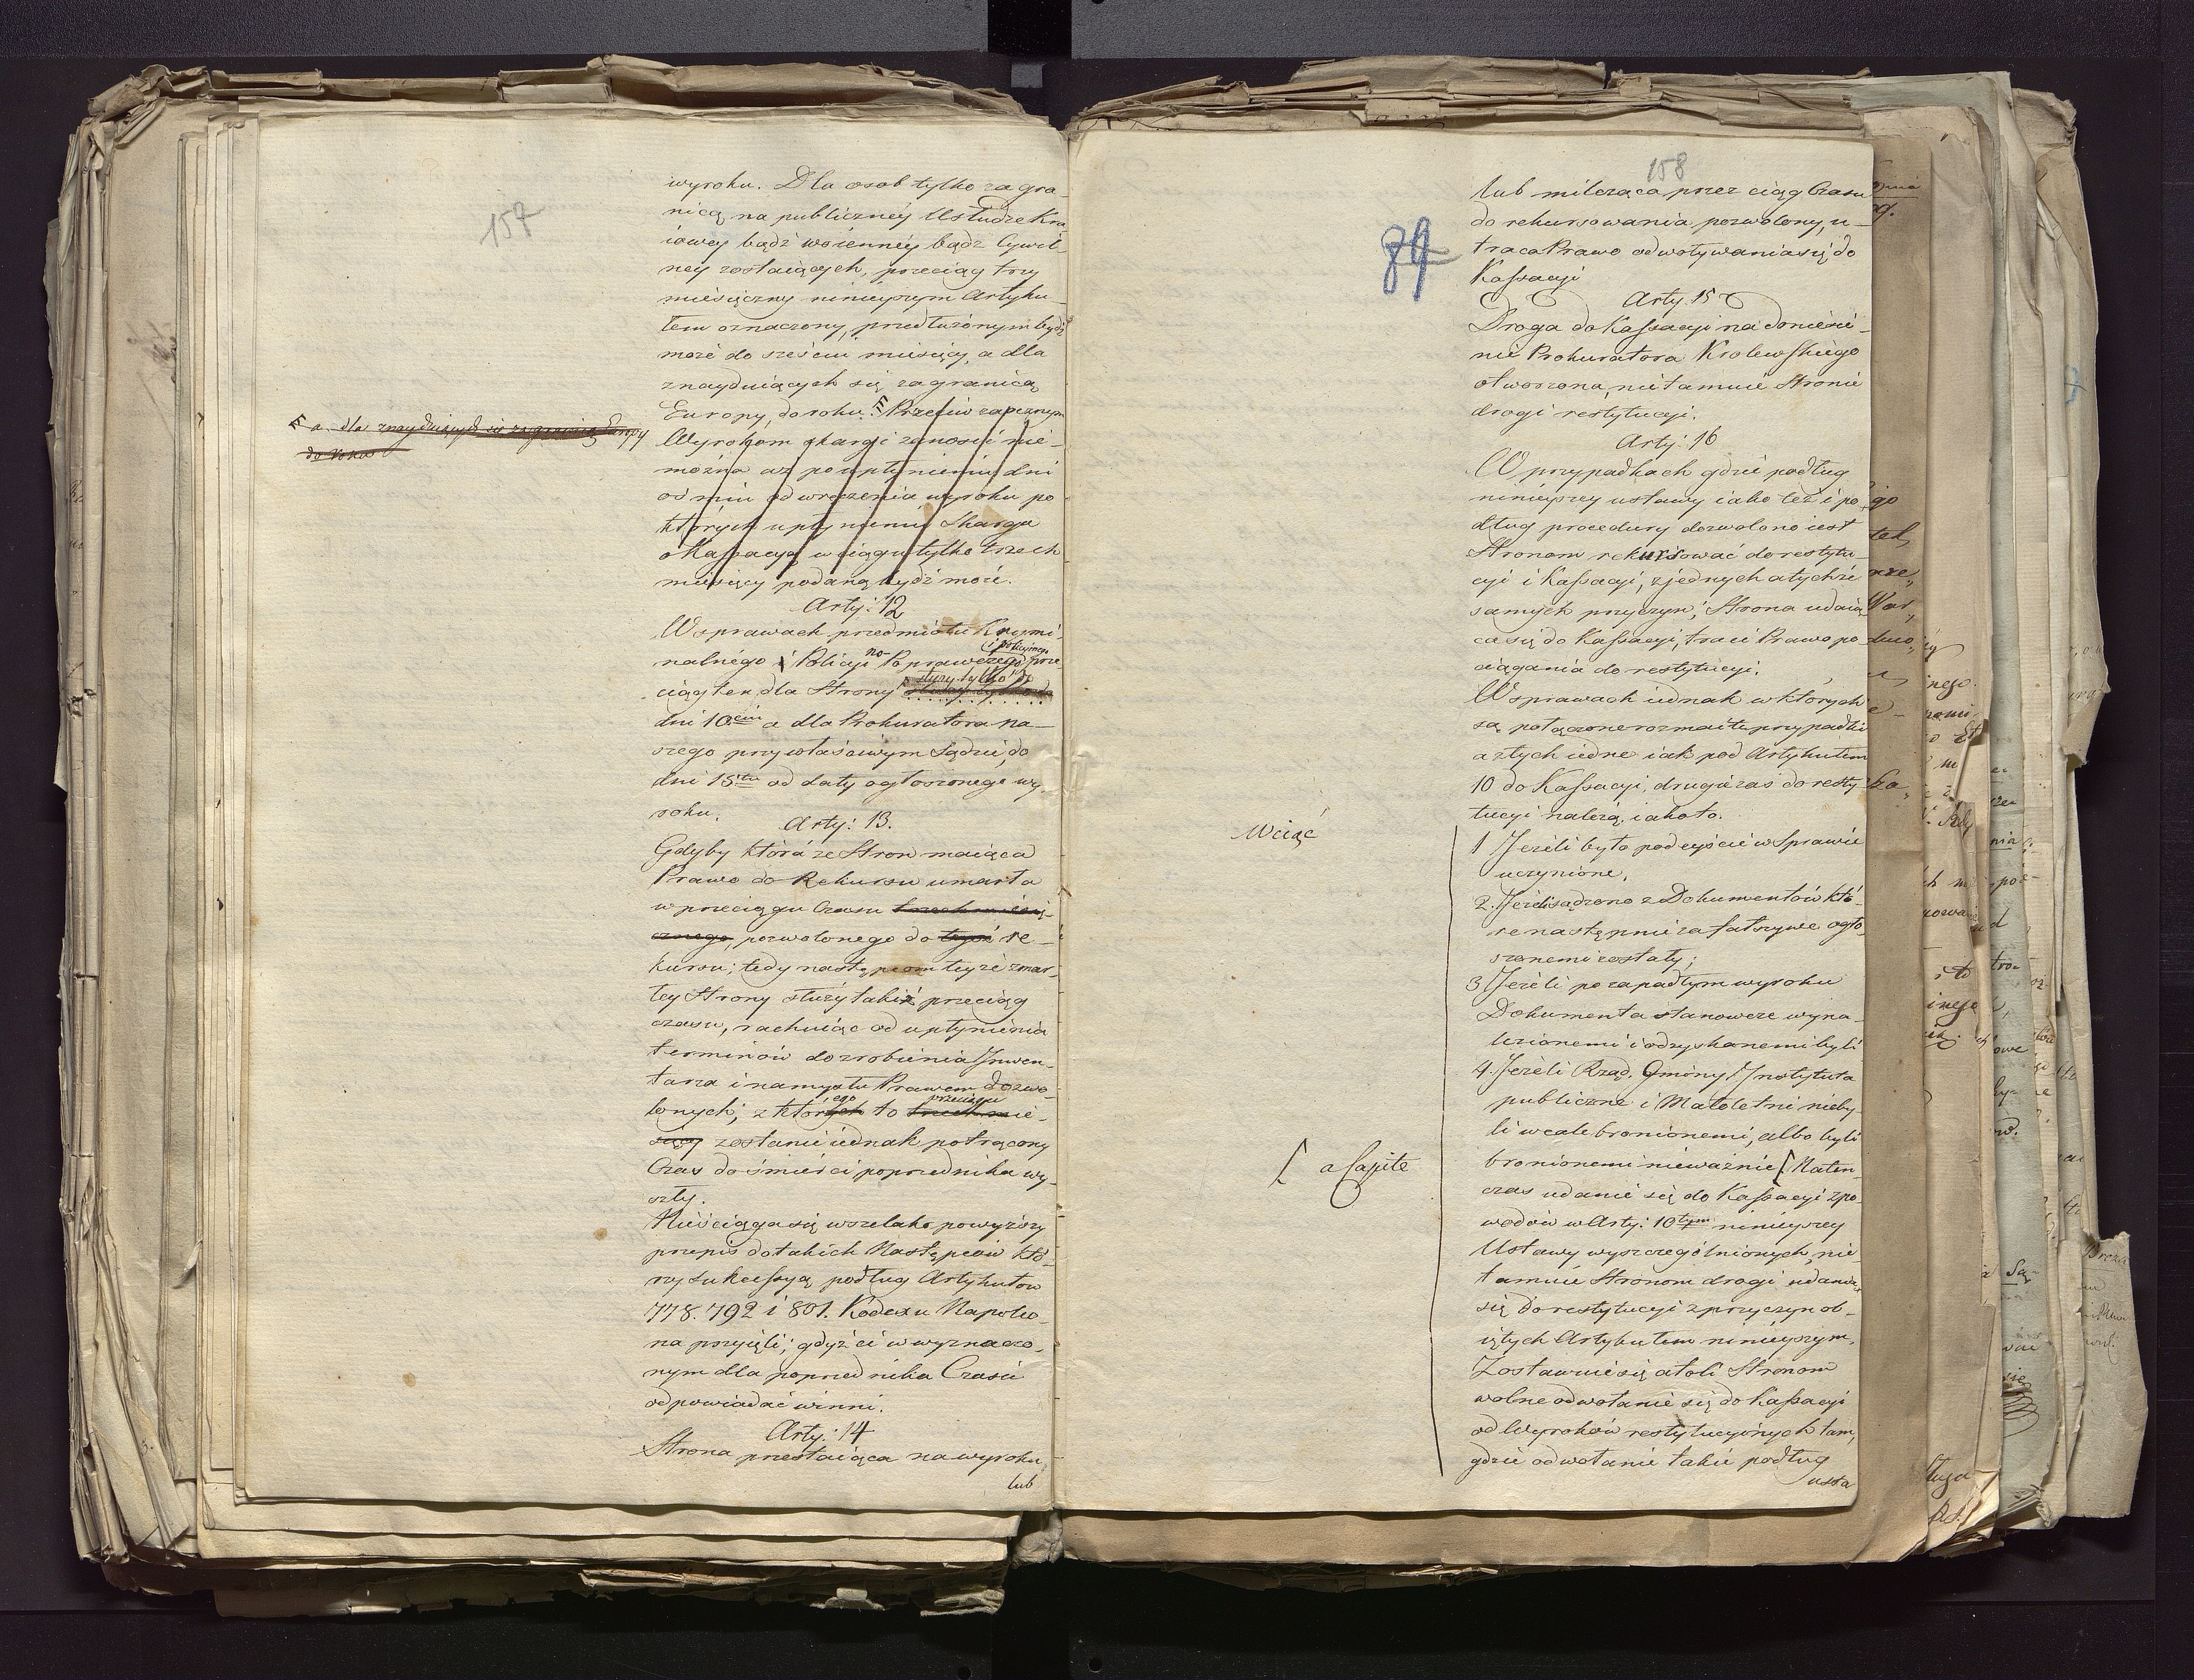 157
wyroku. Dla osob tylko za gra-
nicą na publiczney Usłudze Kra
iowey bądź woienney bądź Cywil-
ney zostaiących, przeciąg trzy
miesięczny ninieyszym Artyku-
łem oznaczony, przedłużonym bydź
może do sześciu miesięcy, a dla
znayduiących się zagranicą
Europy, do roku. Przeciw zaocznym
a dla znayduiących się za granicą Europy
do Roku
Wyrokom skargi zanosić nie-
można aż po upłynieniu dni
ośmiu od wręczenia wyroku po
których upłynieniu Skarga
o Kassacyą w ciągu tylko trzech
miesięcy podaną bydź może.
Arty: 12
W sprawach przedmiotu Krymi-
nalnego i Policyi no- Poprawczego i policyinego prze
ciąg ten dla Strony służy tylko do
dni 10ciu a dla Prokuratora na-
szego przy właściwym Sądzie, do
dni 15tu od daty ogłoszonego wy-
roku.
Arty: 13.
Gdyby która ze Stron maiąca
Prawo do Rekursu umarła
w przeciągu Czasu trzech miesię-
cznego, pozwolonego do tegoż re-
kursu; tedy następcom teyże zmar-
łey Strony służy takiż przeciąg
czasu, rachuiąc od upłynienia
terminów do zrobienia Inwen-
tarza i namysłu Prawem dozwo-
lonych; z których ego to trzech mie- przeciągu
sięcy zostanie iednak potrącony
Czas do śmierci poprzednika wy-
szły.
Nieściąga się wszelako powyższy
przepis do takich Następców któ-
rzy sukcessyą podług Artykułow
778. 792 i 801. Kodexu Napoleo-
na przyięli; gdyż ci w wyznaczo-
nym dla poprzednika Czasie
odpowiadać winni.
Arty: 14
Strona przestaiąca na wyroku
lub
158
84
lub milcząca przez ciąg Czasu
do rekursowania pozwolony, u-
traca Prawo odwoływania się do
Kassacyi
Arty. 15
Droga do Kassacyi na doniesie-
nie Prokuratora Krolewskiego
otworzona, nie tamuie Stronie
drogi restytucyi.
Arty: 16
W przypadkach gdzie podług
ninieyszey ustawy iako też i po-
dług procedury dozwolono iest
Stronom rekursować do restytu-
cyi i Kassacyi, z jednych a tychże
samych przyczyn; Strona udaią
ca się do Kassacyi, traci Prawo po
ciągania do restytucyi.
W sprawach iednak w których
są połączone rozmaite przypadki
a z tych iedne iak pod Artykułem
10 do Kassacyi, drugie zaś do resty
tucyi należą, iakoto.
Wciąć
1 Jeżeli było podeyście w Sprawie
uczynione,
2. Jeżeli sądzono z Dokumentów któ-
re następnie za fałszywe ogło-
szonemi zostały;
3 Jeżeli po zapadłym wyroku
Dokumenta stanowcze wyna-
lezionemi i odzyskanemi byli
4. Jeżeli Rząd, Gminy, Instytuta
publiczne i Małoletni nieby-
li wcale bronionemi, albo byli
bronionemi nieważnie [ Naten-
[ a Capite
czas udanie się do Kassacyi z po-
wodów w Arty: 10tym ninieyszey
Ustawy wyszczególnionych, nie
tamuie Stronom drogi udania
się do restytucyi z przyczyn ob-
iętych Artykułem ninieyszym.
Zostawuie się atoli Stronom
wolne odwołanie się do Kassacyi
od Wyroków restytucyinych tam,
gdzie odwołanie takie podług
usta